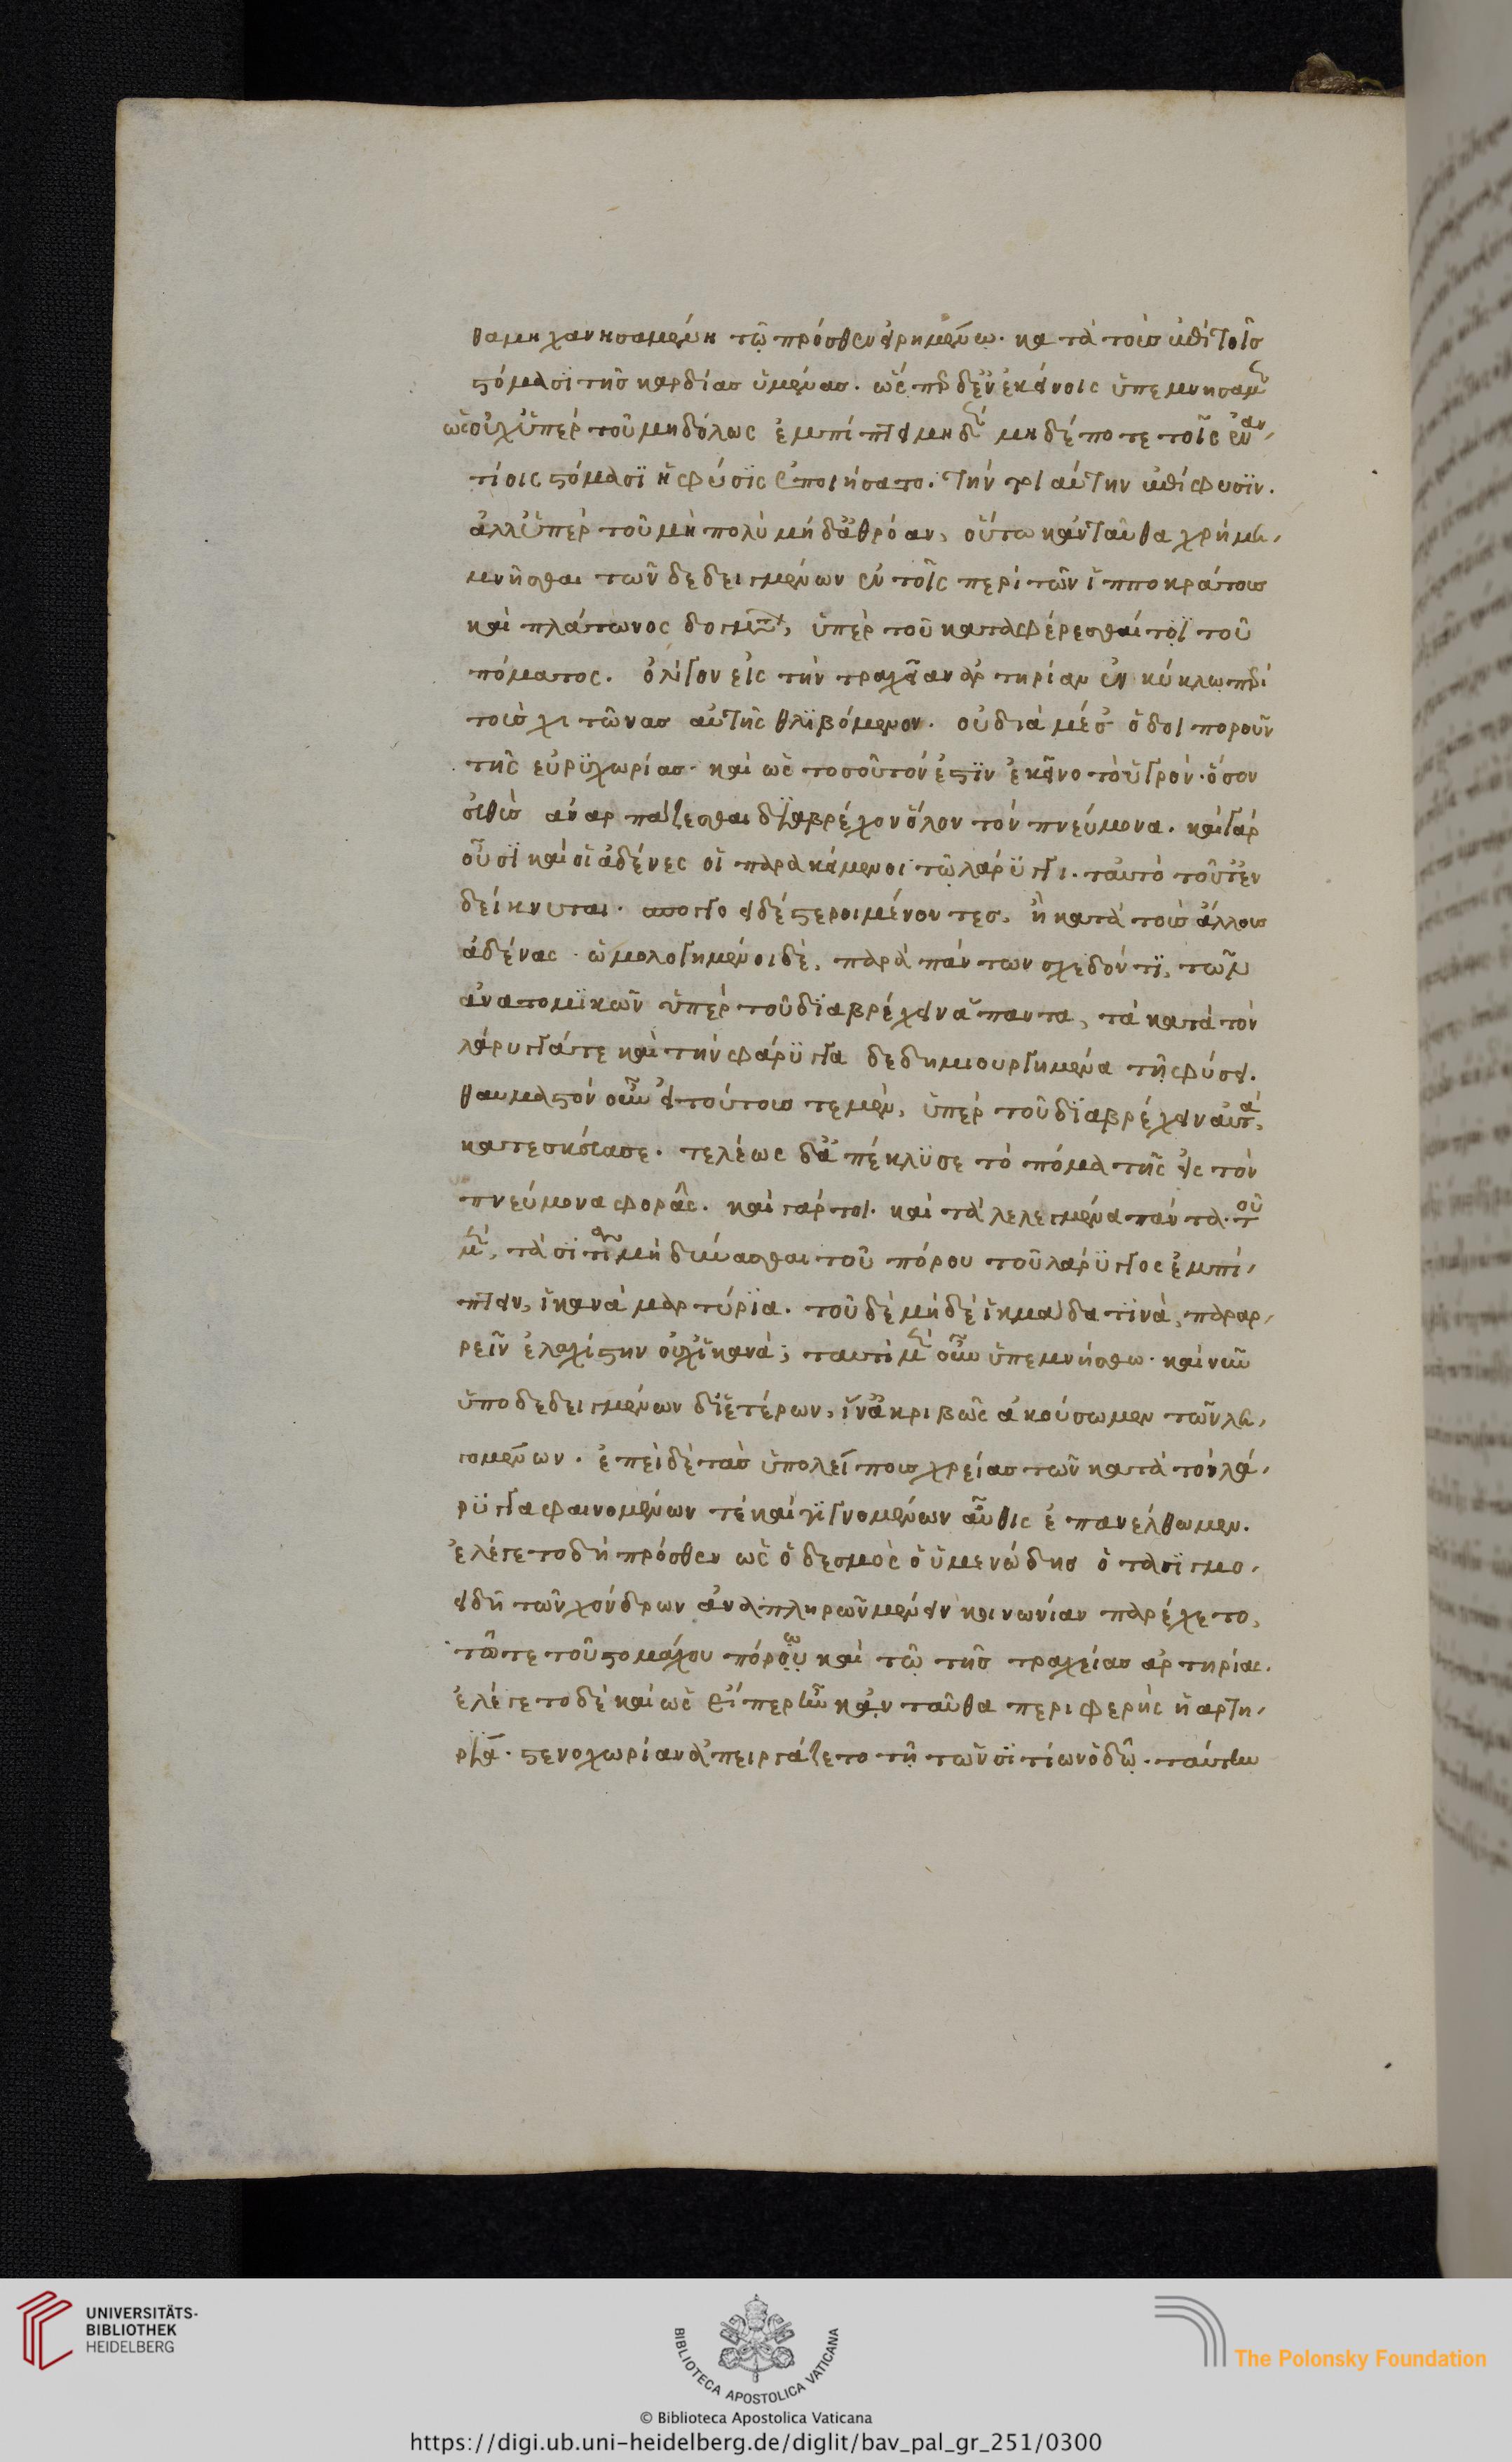 θα μηχανησαμένη τῷ πρόσθεν εἰρημένῳ. κατὰ τοὺς ἐπὶ τοῖς
στόμασι τῆς καρδίας ὑμένας. ὥσπερ δ' ἐν ἐκείνοις ὑπεμνήσαμεν
ὡς οὐχ ὑπὲρ τοῦ μηδόλως ἐμπίπτειν μηδὲν μηδέποτε τοῖς ἐναν
τίοις στόμασϊ ἡ φύσϊς ἐποιήσατο. τὴν τοιαύτην ἐπίφυσϊν.
ἀλλ' ὑπὲρ τοῦ μὴ πολὺ μήδ' ἀθρόαν, οὕτω κἀνταῦθα χρὴ με
μνῆσθαι τῶν δεδειγμένων ἐν τοῖς περὶ τῶν ἱπποκράτους
καὶ πλάτωνος δογμάτων, ὑπὲρ τοῦ καταφέρεσθαί τοϊ τοῦ
πόματος. ὀλίγον εἰς τὴν τραχεῖαν ἀρτηρίαν ἐν κύκλῳ περὶ
τοὺς χιτῶνας αὐτῆς θλϊβόμενον. οὐ διὰ μέσης ὁδοιποροῦν
τῆς εὐρϋχωρίας. καὶ ὡς τοσοῦτόν ἐστϊν ἐκεῖνο τὸ ὑγρόν. ὅσον
εὐθὺς ἀναρπάζεσθαι διαβρέχον ὅλον τὸν πνεύμονα. καὶ γὰρ
οὖσϊ καὶ οἱ ἀδένες οἱ παρακείμενοι τῷ λάρϋγγι. ταυτὸ τοῦτ' ἐν
δείκνυται. σπογγοειδέστεροι μένοντες, ἢ κατὰ τοὺς ἄλλους
ἀδένας. ὡμολογημένοι δὲ, παρὰ πάντων σχεδόν τϊ, τῶν
ἀνατομϊκῶν ὑπὲρ τοῦ δϊαβρέχειν ἅπαντα, τὰ κατὰ τὸν
λάρυγγά τε καὶ τὴν φάρϋγγα δεδημιουργημένα τῇ φύσει.
θαυμαστὸν οὖν εἰ τούτους τε μὲν, ὑπὲρ τοῦ δϊαβρέχειν αὐτὰ,
κατεσκεύασε. τελέως δ' ἀπέκλϋσε τὸ πόμα τῆς εἰς τὸν
πνεύμονα φορᾶς. καὶ γάρ τοι. καὶ τὰ λελεγμένα πάντα. τοῦ
μὲν, τὰ σϊτία μὴ δύνασθαι τοῦ πόρου τοῦ λάρϋγγος ἐμπί
πτειν, ἱκανὰ μαρτύρϊα. τοῦ δὲ μηδὲ ἰκμάδα τϊνὰ, παραρ
ρεῖν ἐλαχίστην οὐχ ἱκανά; ταυτὶ μὲν οὖν ὑπεμνήσθω. καὶ νῦν
ὑποδεδειγμένων δϊ' ἑτέρων, ἵν' ἀκριβῶς ἀκούσωμεν τῶν λε
γομένων. ἐπεὶ δὲ τὰς ὑπολείπους χρείας τῶν κατὰ τὸν λά
ρϋγγα φαινομένων τὲ καὶ γϊγνομένων αὖθις ἐπανέλθωμεν.
ἐλέγετο δὴ πρόσθεν ὡς ὁ δεσμὸς ὁ ὑμενώδης ὁ τὰ σϊγμο
ειδῆ τῶν χόνδρων ἀναπληρῶν μὲν εἰν κοινωνίαν παρέχετο,
τῶτε τοῦ στομάχου πόρου καὶ τῷ τῆς τραχείας ἀρτηρίας.
ἐλέγετο δὲ καὶ ὡς εἴπερ ἦν κἀνταῦθα περιφερὴς ἡ ἀρτη
ρϊα. στενοχωρίαν ἀπειργάζετο τῇ τῶν σϊτίων ὁδῷ. ταύτην
UNIVERSITÄTS-
BIBLIOTHEK
HEIDELBERG
BIBLIOTECA APOSTOLICA VATICANA
The Polonsky Foundation
© Biblioteca Apostolica Vaticana
https://digi.ub.uni-heidelberg.de/diglit/bav_pal_gr_251/0300